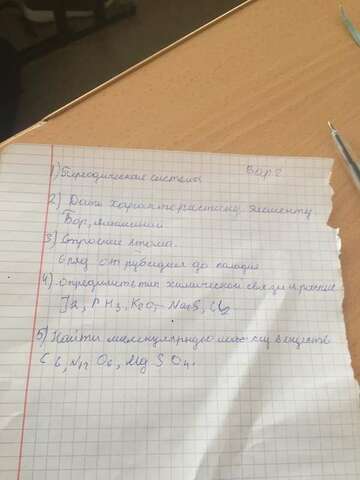 Вар 2
1) Периодическая система
2) Дать характеристику элементу
Бор, алюминий
3) Строение атома.
6 ряд от рубидия до палладия
4) определить тип химической связи
PH3, K2O, Na2S, Cl2
5) Найти молекулярную массу веществ
C6, N12 O6, Mg S O4.